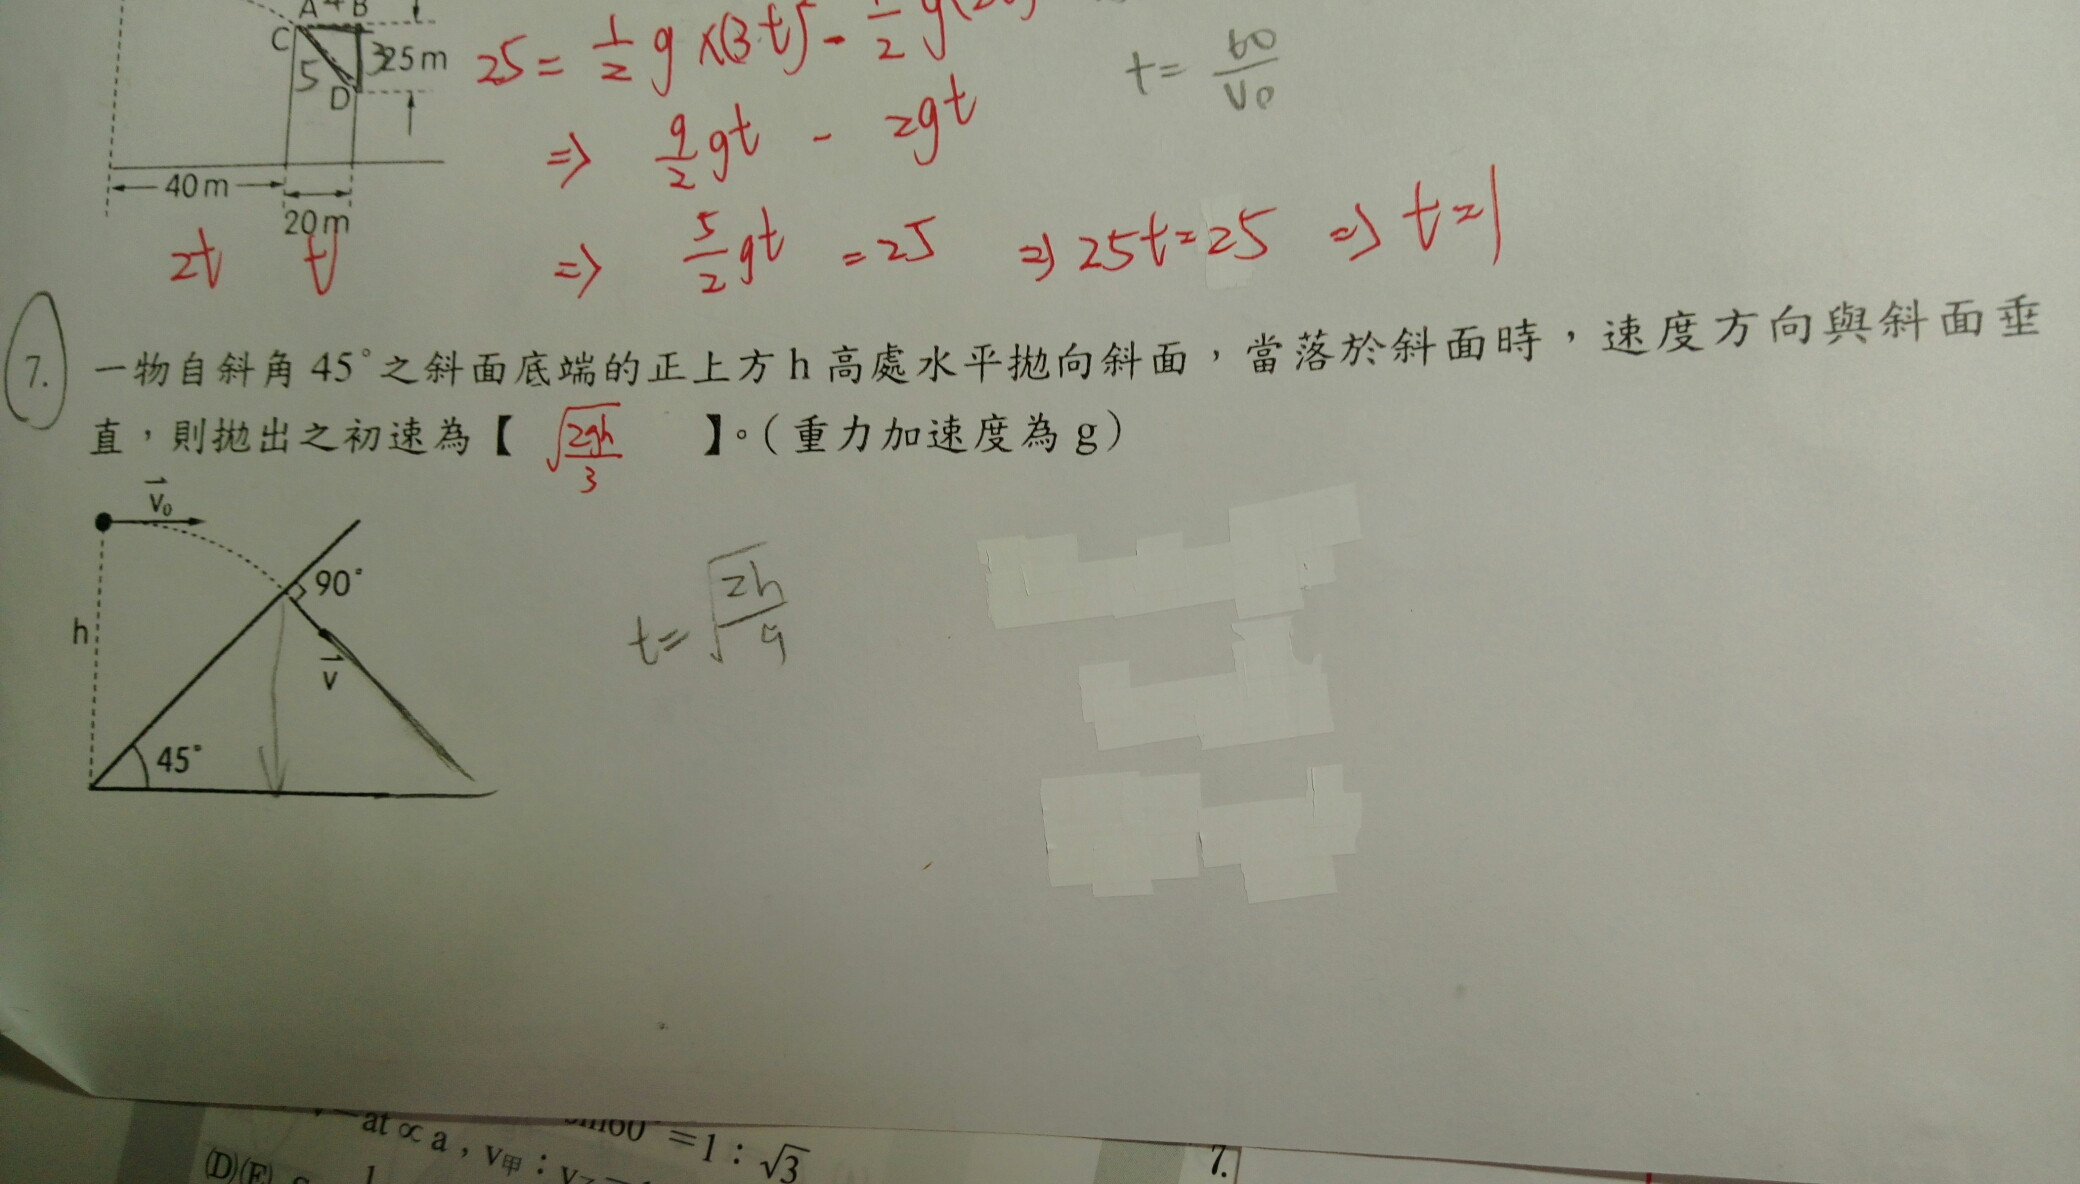 A 4 B
C
5
3
25m
D
40m
20m
2t t
25 = 1/2 g ×(3t)² - 1/2 g
⇒ 9/2 gt - 2gt
⇒ 5/2 gt = 25 ⇒ 25t = 25 ⇒ t = 1
t = 60/V0
7. 一物自斜角 45° 之斜面底端的正上方 h 高處水平拋向斜面，當落於斜面時，速度方向與斜面垂
直，則拋出之初速為【 √(2gh/3) 】。（重力加速度為 g）
v₀
90°
h
v
45°
t = √(2h/g)
at ∝ a，v甲：
=1：√3
(D)(E)
7.